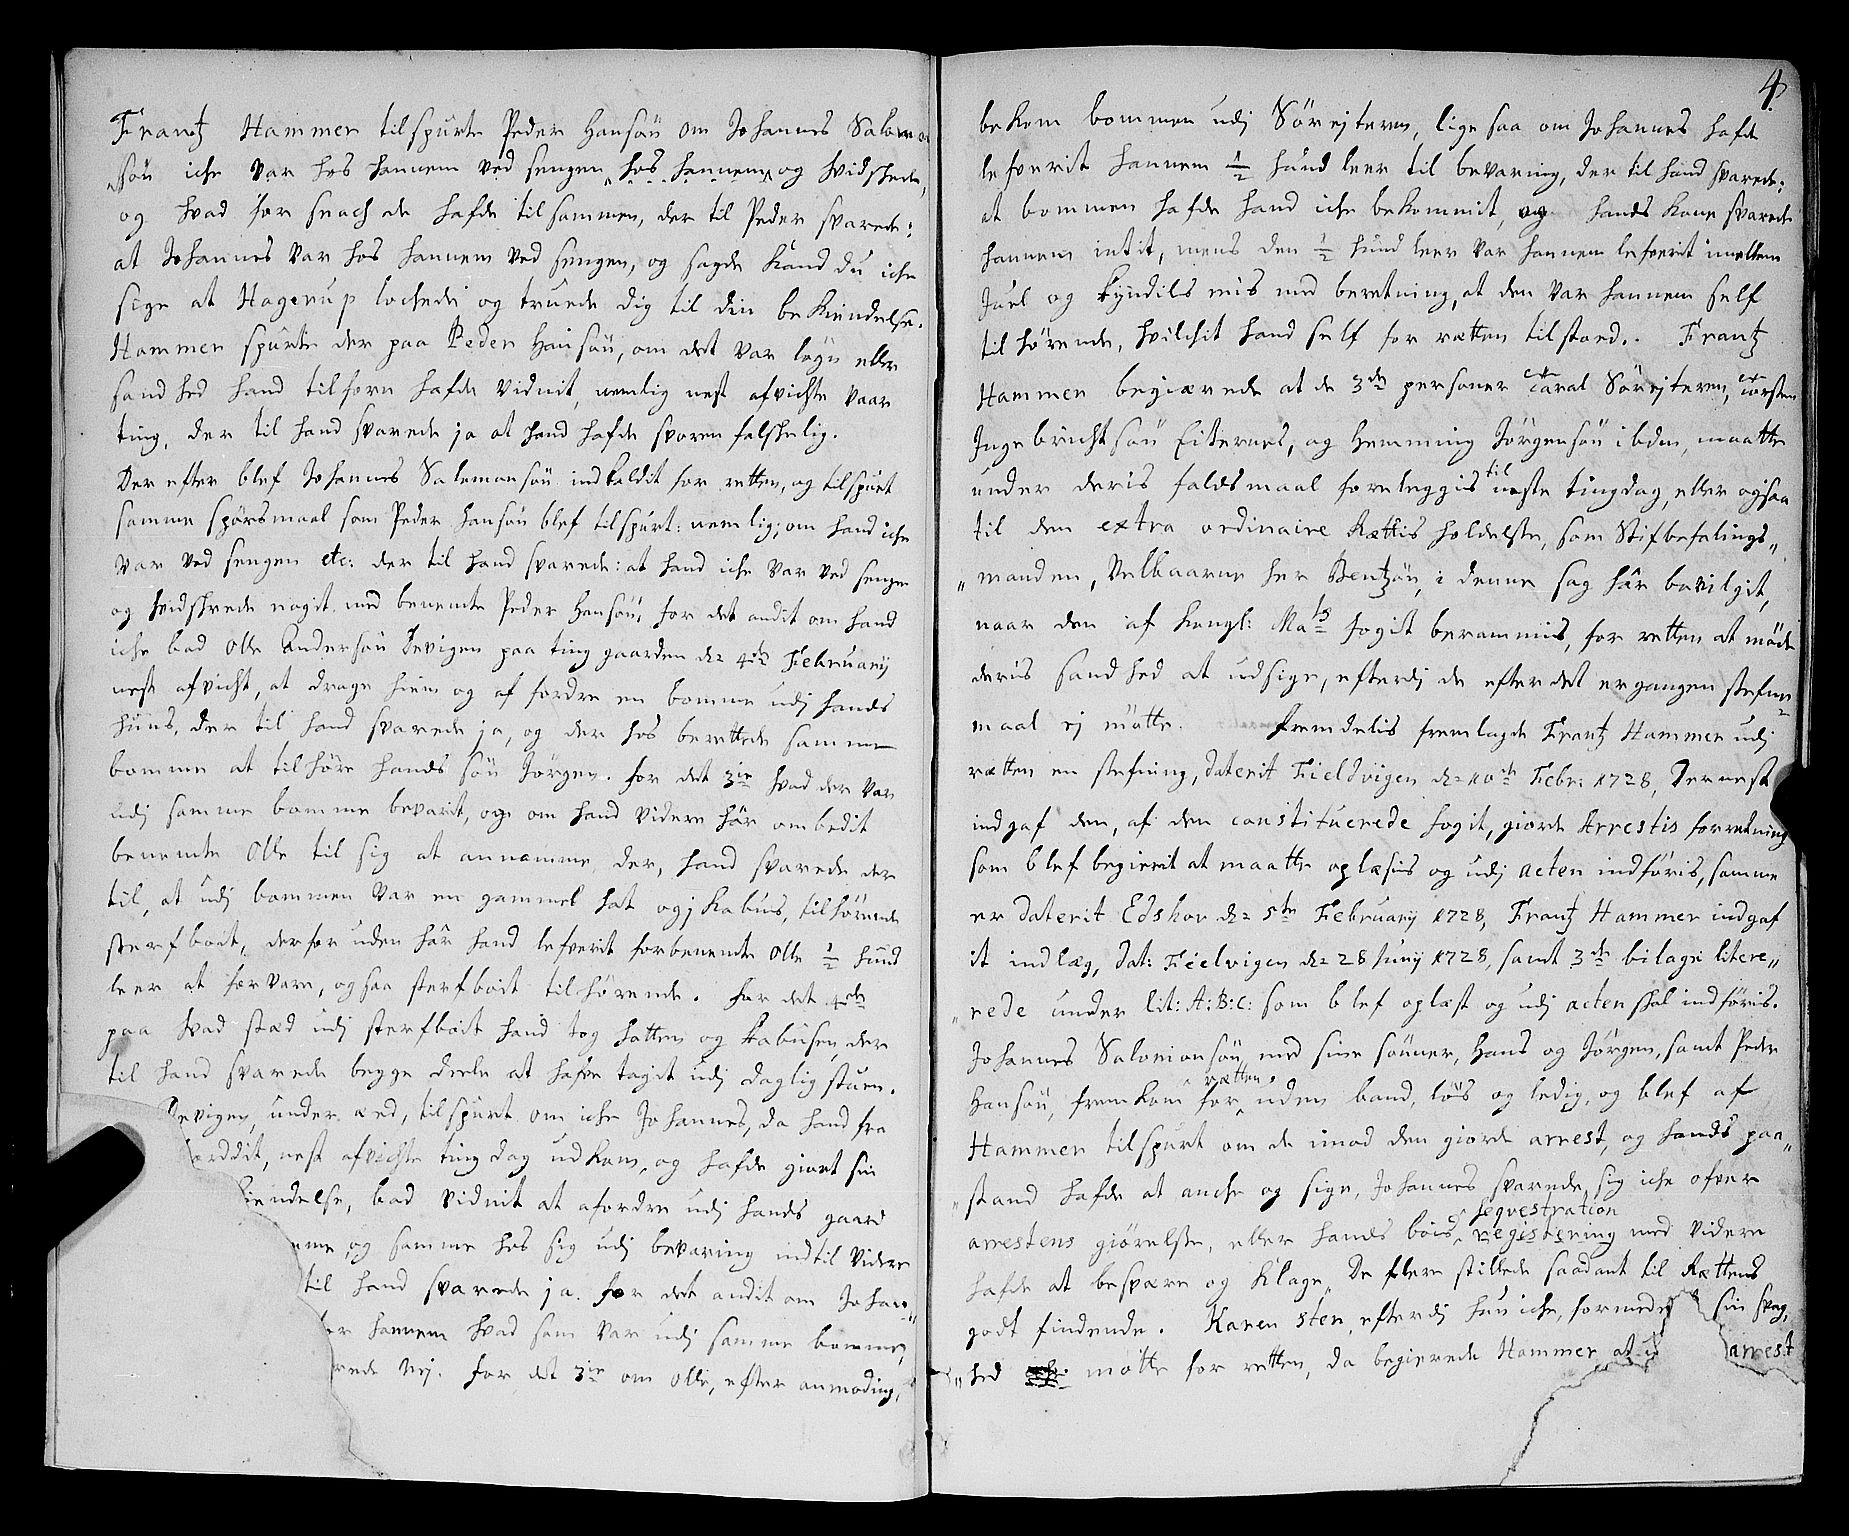 Frantz Hammer tilspurte Peder Hansøn om Johannes Salomon
„søn iche var hos hannem ved sengen, hos hannem, og hvidskede,
og hvad for snach de hafde tilsammen, der til Peder svarede:
at Johannes var hos hannem ved sengen, og sagde kand du iche
sige at Hagerup lochede og truede dig til din bekiendelse.
Hammer spurte der paa Peder Hansøn, om det var løgn eller
sandhed hand tilforn hafde vidnit, nemlig nest afvichte vaar
ting, der til hand svarede ja at hand hafde svoren falskelig.
Der efter blef Johannes Salemonsøn indkaldit for retten, og tilspurt
samme spørsmaal som Peder Hansøn blef tilspurt: nemlig; om hand iche
var ved sengen etc: der til hand svarede: at hand iche var ved senge
og hvidskrede nogit med benemte Peder Hansøn, for det andit om hand
iche bad Olle Andersøn Devigen paa tinggaarden d: 4de February
nest afvicht, at drage hiem og af fordre en bomme udj hands
huus, der til hand svarede ja, og der hos berettede samme
bomme at tilhøre hands søn Jørgen. for det 3ie hvad der var
udj samme bomme bevarit, og om hand videre hâr ombedit
benemte Olle til sig at annamme, der, hand svarede der
til, at udj bommen var en gammel hat og j kabus, tilhørende
sterfboet, derforuden hâr hand lefverit forbenemte Olle ½ hund
leer at forvare, ogsaa sterfboet tilhørende. for det 4de
paa hvad stæd udj sterfboet hand tog hatten og kabusen, der
til hand svarede begge deele at hafve tagit udj daglig stuen.
Devigen, under æd, tilspurt om iche Johannes, da hand fra
nest afvichte ting dag udkom, og hafde giort sin
iendelse, bad vidnit at afordre udj hands gaard
mme, og samme hos sig udj bevaring indtil videre
til hand svarede ja. for det andit om Johan„
for hannem hvad som var udj samme bomme,
rede Nej. for det 3ie om Olle, efter anmoding,
4
bekom bommen udj Sørejteren, lige saa om Johannes hafde
lefverit hannem ½ hund leer til bevaring, der til hand svarede:
at bommen hafde hand iche bekommit, og hands kone svarede
hannem intit, mens den ½ hund leer var hannem lefverit imellem
Juel og Kyndilsmis med beretning, at den var hannem self
tilhørende, hvilchit hand self for rætten tilstoed. Frantz
Hammer begiærede at de 3de personer Caral Sørejteren, Torsten
Ingebrichtsøn Eiternes, og Hemming Jørgensøn ibdm, maatte
under deris faldsmaal foreleggis til neste tingdag, eller ogsaa
til den extra ordinaire Rættis holdelse, som Stifbefalings„
„manden, Velbaarne her Bentzøn, i denne sag hâr bevilgit,
naar den af Kongl: Mats fogit berammis, for retten at møde
deris sandhed at udsige, efterdj de efter det ergangen stefne„
maal ej møtte. fremdelis fremlagde Frantz Hammer udj
rætten en stefning, daterit Fieldvigen d: 10de Febr: 1728, Dernest
indgaf den, af den constituerede fogit, giorde Arrestis forretning
som blef begierit at maatte oplæsis og udj acten indføris, samme
er daterit Edshov d: 5te February 1728, Frantz Hammer indgaf
it indlæg, dat: Fielvigen d: 28 Juny 1728, samt 3de bilage litere„
„rede under lit: A: B: C: som blef oplæst og udj acten skal indføris.
Johannes Salomonsøn, med sine sønner, Hans og Jørgen, samt Peder
Hansøn, fremkom for rætten, uden baand, løs og ledig, og blef af
Hammer tilspurt om de imod den giorde arrest, og hands paa„
„stand hafde at anche og sige, Johannes svarede, sig iche ofver
arrestens giørelse, eller hands boes sequestration registering med videre
hafde at besvære og klage, De flere stillede saadant til Rættens
godt findende. Karen Sten, efterdj hun iche, formedelst sin svag„
„hed møtte for retten, da begierede Hammer at arrest